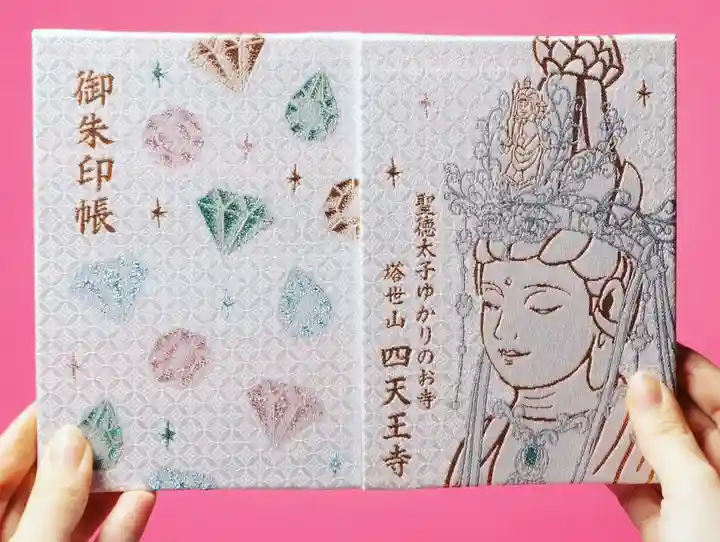 御朱印帳
聖徳太子ゆかりのお寺
塔世山
四天王寺